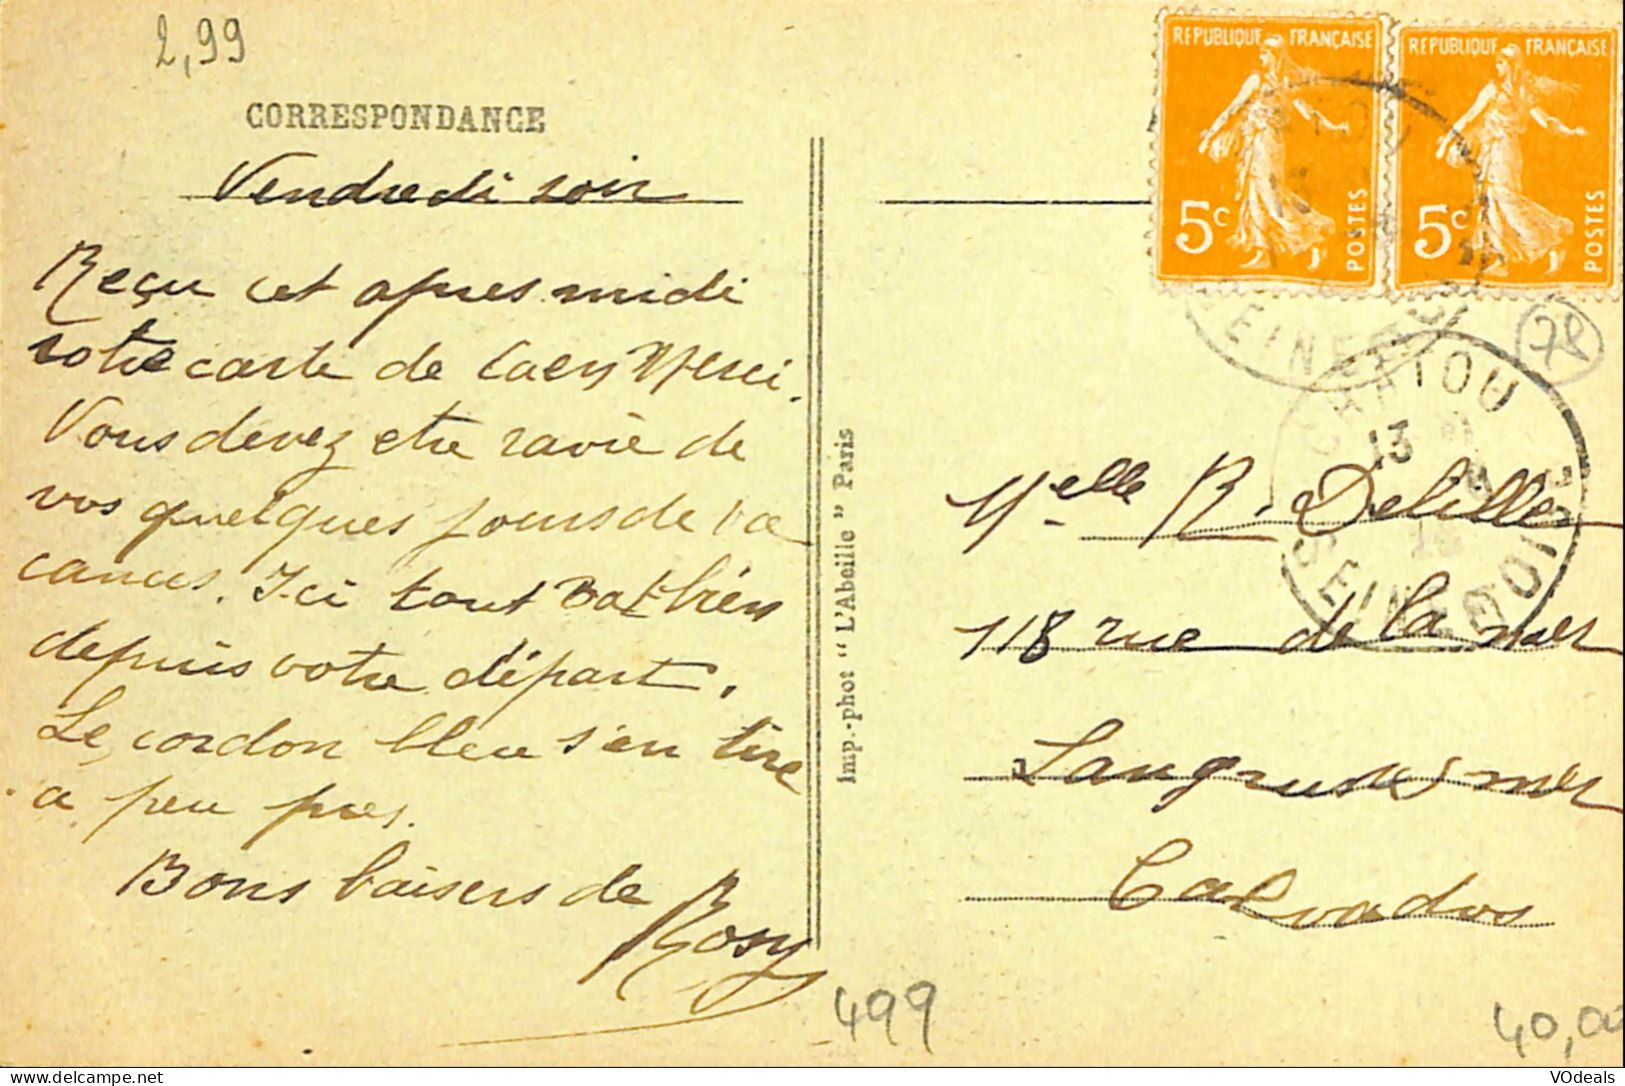 2,99
CORRESPONDANCE
Vendredi soir
Reçu cet apres midi
votre carte de Caen Merci.
Vous devez etre ravie de
vos quelques jours de va
cances. Ici tout va bien
depuis votre départ.
Le cordon bleu s'en tire
a peu pres.
Bons baisers de
Rosy
Imp.-phot "L'Abeille" Paris
REPUBLIQUE FRANÇAISE
5c
POSTES
REPUBLIQUE FRANÇAISE
5c
POSTES
78
CHATOU
13
SEINE ET OISE
Melle R. Delille
118 rue de la mer
Langrune s/ mer
Calvados
499
40,00
VOdeals